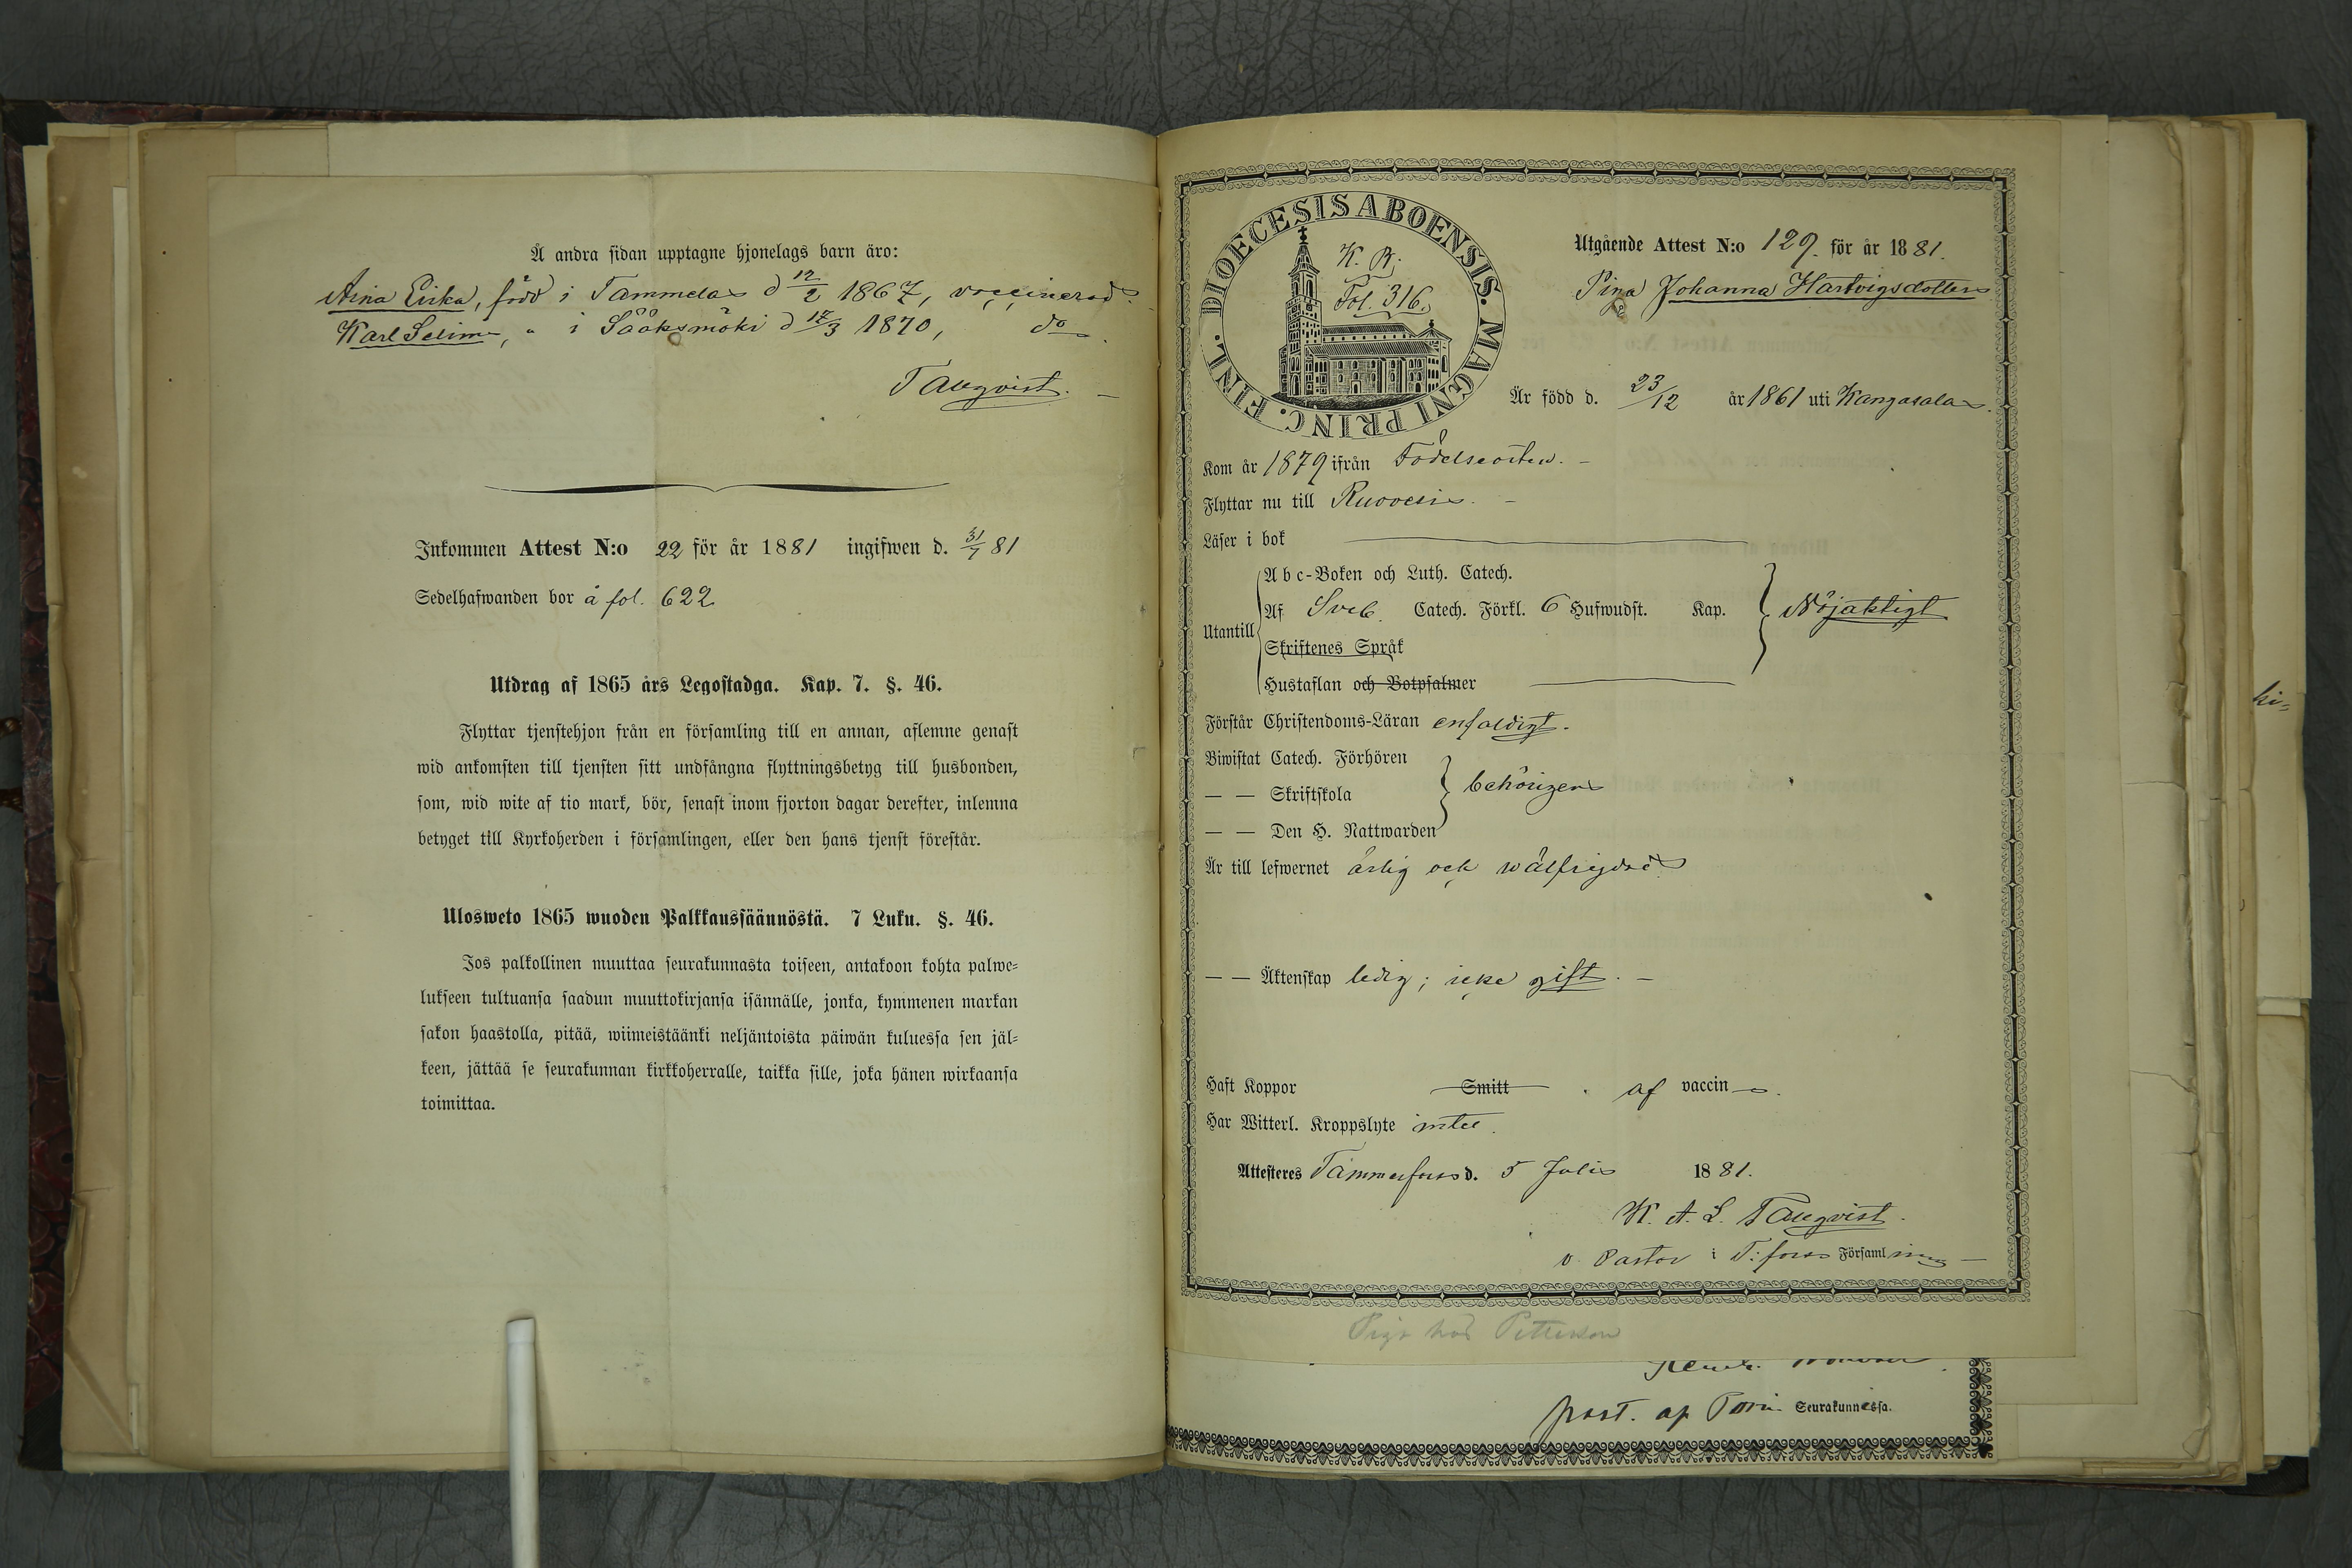 Å andra sidan upptagne hjonelags barn äro:
Aina Erika, född i Tammela d 12/2 1867, vaccinerad.
Karl Selim, " i Sääksmäki d 17/3 1870, do
Tallqvist.
Inkommen Attest N:o 22 för år 1881 ingifwen d. 31/7 81
Sedelhafwanden bor å fol. 622
Utdrag af 1865 års Legostadga. Kap. 7. §. 46.
Flyttar tjenstehjon från en församling till en annan, aflemne genast
wid ankomsten till tjensten sitt undfångna flyttningsbetyg till husbonden,
som, wid wite af tio mark, bör, senast inom fjorton dagar derefter, inlemna
betyget till Kyrkoherden i församlingen, eller den hans tjenst förestår.
Ulosweto 1865 wuoden Palkkaussäännöstä. 7 Luku. §. 46.
Jos palkollinen muuttaa seurakunnasta toiseen, antakoon kohta palwe-
lukseen tultuansa saadun muuttokirjansa isännälle, jonka, kymmenen markan
sakon haastolla, pitää, wiimeistäänki neljäntoista päiwän kuluessa sen jäl-
keen, jättää se seurakunnan kirkkoherralle, taikka sille, joka hänen wirkaansa
toimittaa.
DIOECESIS ABOENSIS. MAGNI PRINC. FINL.
K. B.
Fol. 316.
Utgående Attest N:o 129. för år 1881.
Piga Johanna Hartvigsdotter
Är född d. 23/12 år 1861 uti Kangasala.
Kom år 1879 ifrån Födelseorten.
Flyttar nu till Ruovesi.
Läser i bok
Utantill
A b c-Boken och Luth. Catech.
Af Sveb. Catech. Förkl. 6 Hufwudst. Kap.
Nöjaktigt
Skriftenes Språk
Hustaflan och Botpsalmer
Förstår Christendoms-Läran enfaldigt.
Biwistat Catech. Förhören
— — Skriftskola
behörigen
— — Den H. Nattwarden
Är till lefwernet ärlig och wälfrejdad.
— — Äktenskap ledig; icke gift.
Haft Koppor Smitt af vaccin
Har Witterl. Kroppslyte intet.
Attesteres Tammerfors d. 5 Juli 1881.
K. A. L. Tallqvist.
v. Pastor i T:fors Församling
Piga hos Petterson
past. ap Seurakunnassa.
ki-